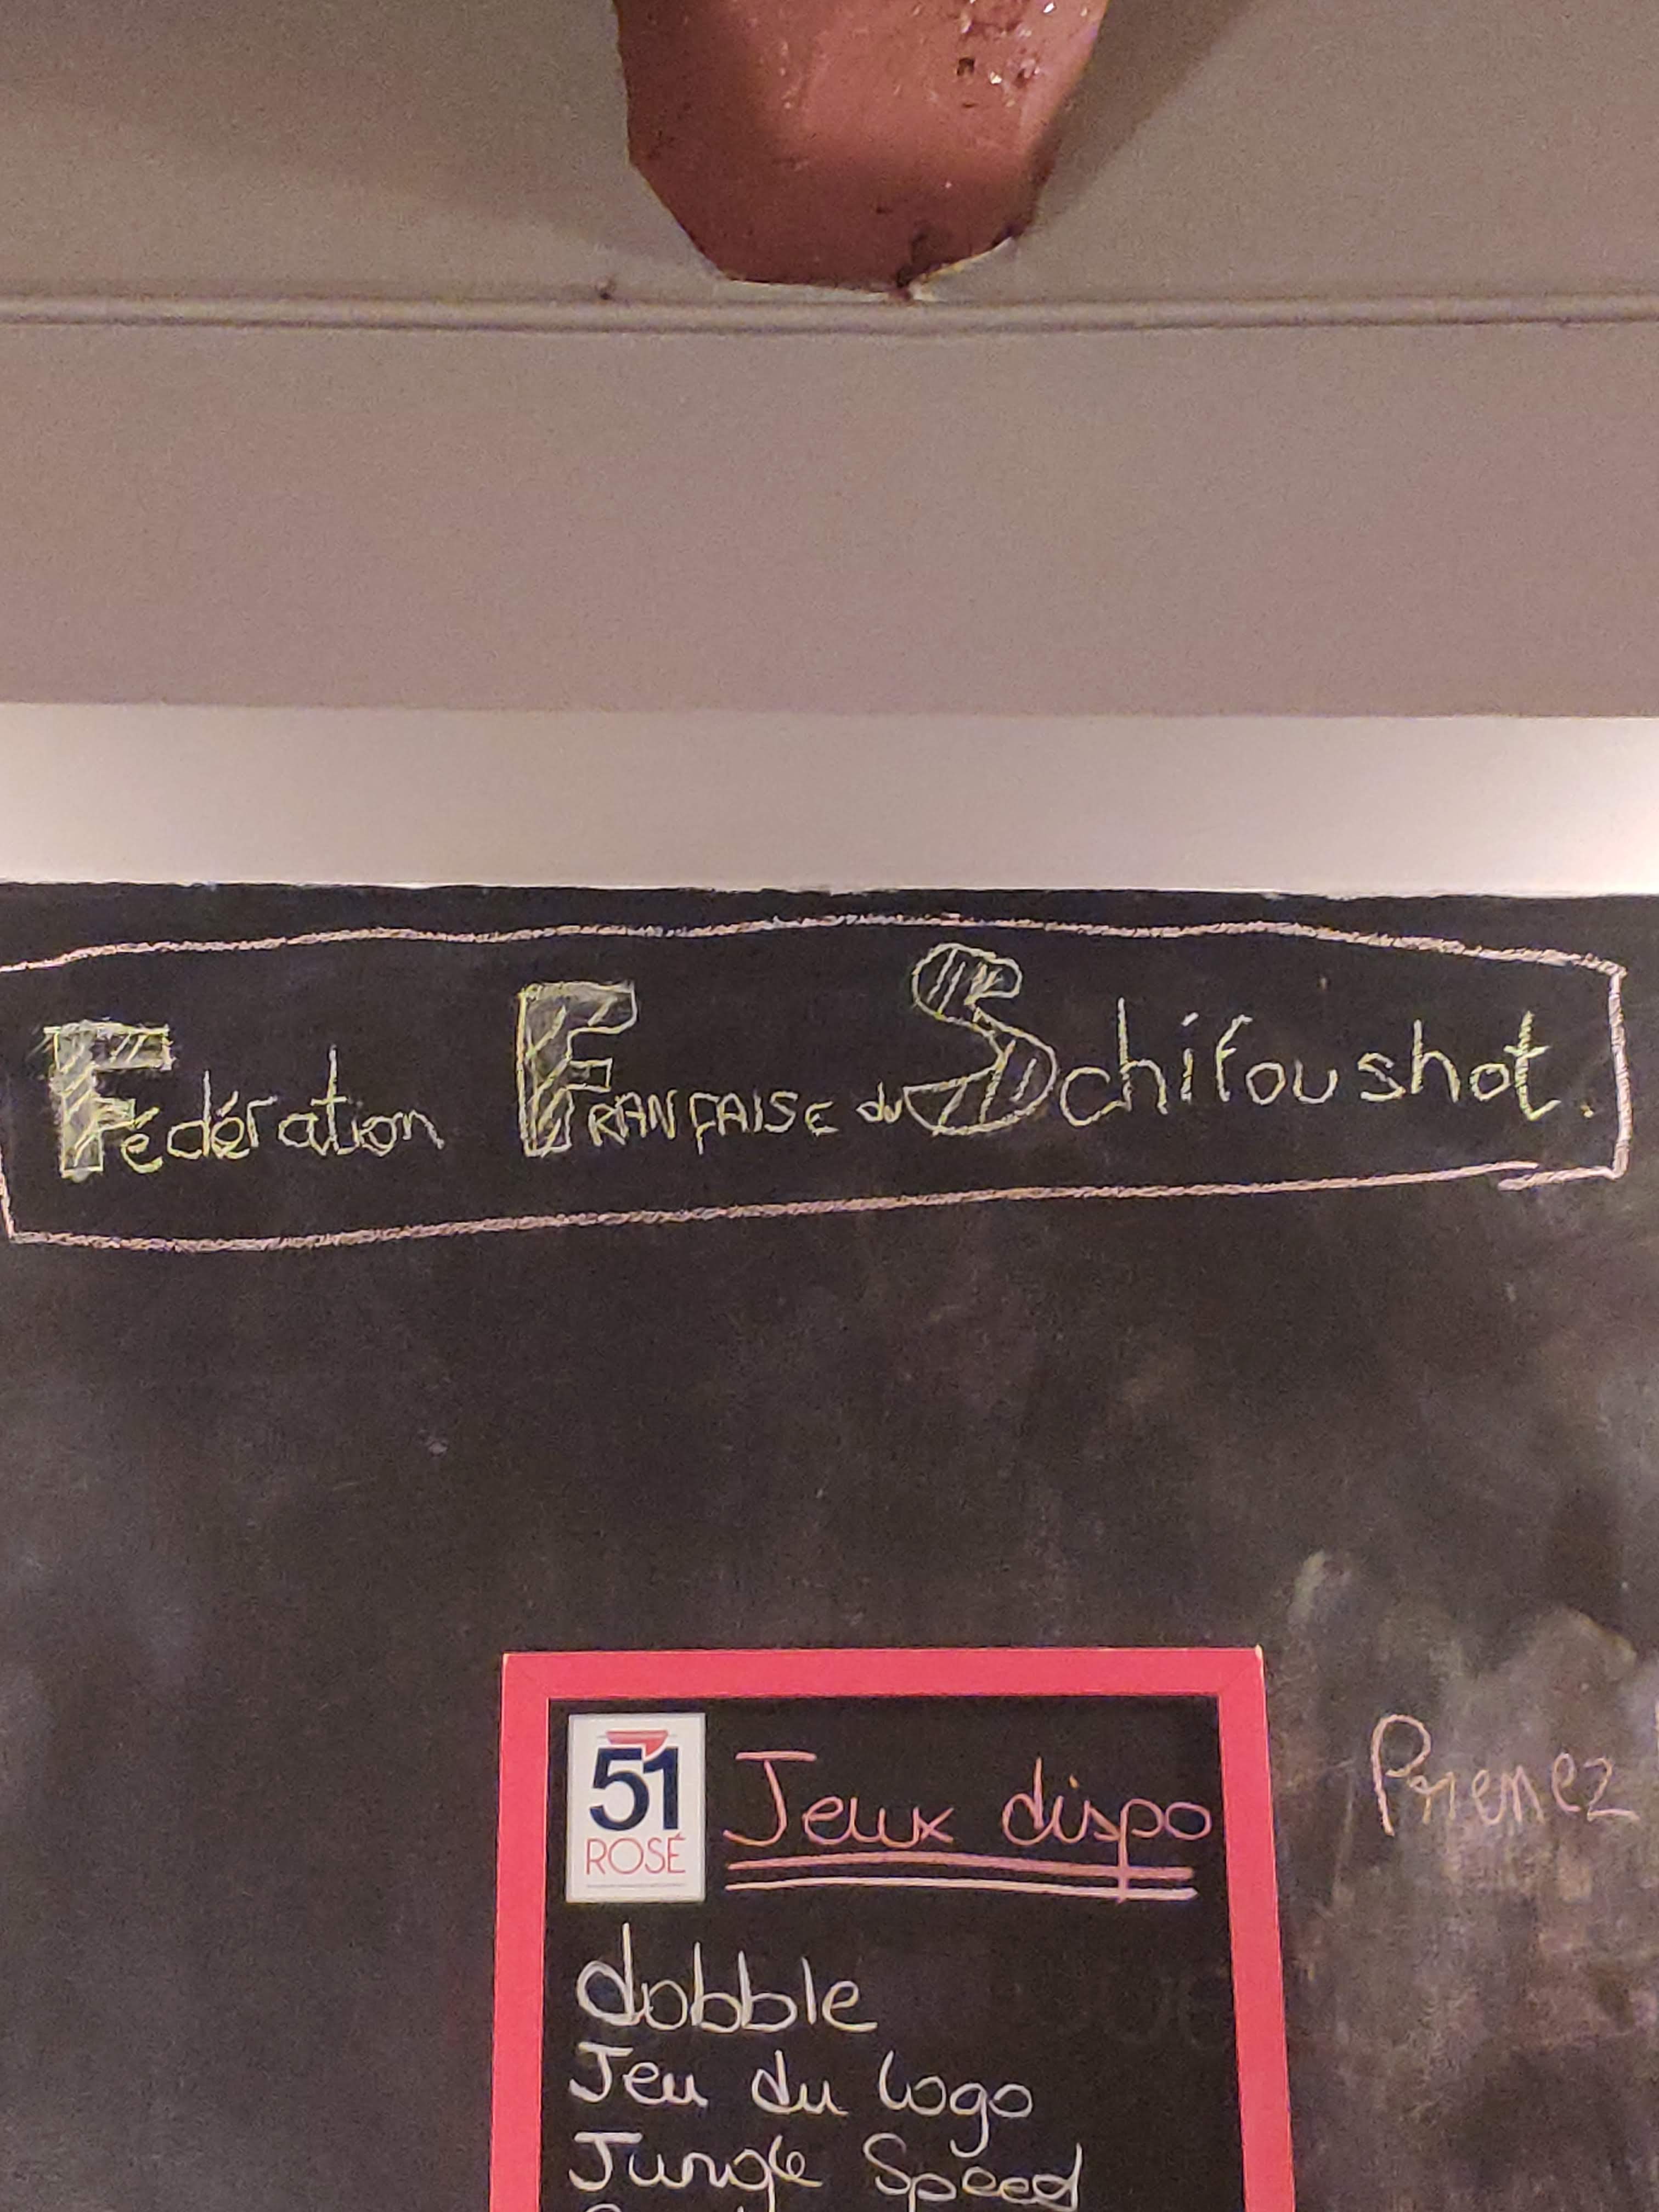 Fédération FRANÇAISE du Schifoushot.
51
ROSÉ
Jeux dispo
Prenez
dobble
Jeu du logo
Jungle Speed